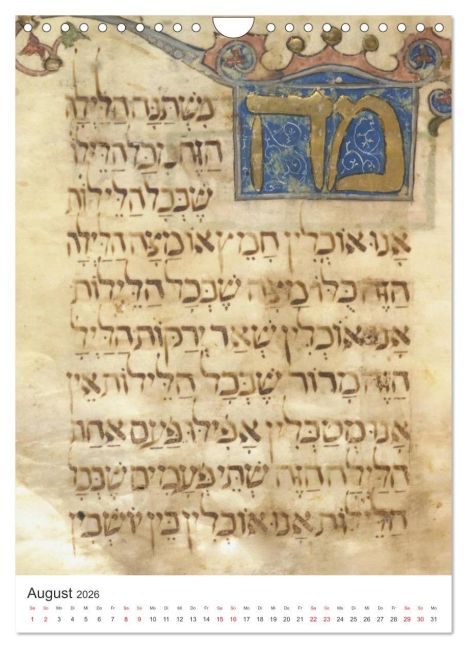 מה
משתנה הלילה
הזה מכל הלילו
שבכל הלילות
אנו אוכלין חמיץ או מצה הלילה
הזה כלו מצה שבכל הלילות
אנו אוכלין שאר ירקות הליל
הזה מרור שבכל הלילות אין
אנו מטבלין אפילו פעם אחת
הלילה הזה שתי פעמים שבכל
הלילות אנו אוכלין בין יושבין
August 2026
Sa So Mo Di Mi Do Fr Sa So Mo Di Mi Do Fr Sa So Mo Di Mi Do Fr Sa So Mo Di Mi Do Fr Sa So Mo
1 2 3 4 5 6 7 8 9 10 11 12 13 14 15 16 17 18 19 20 21 22 23 24 25 26 27 28 29 30 31